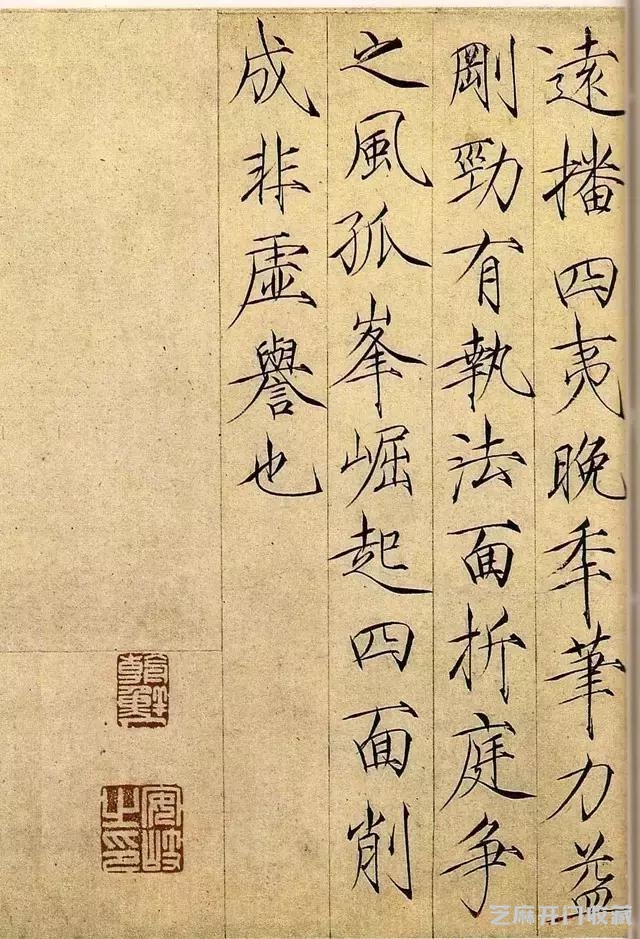 遠播四夷晚年筆力益
剛勁有執法面折庭爭
之風孤峯崛起四面削
成非虛譽也
朝鮮
安岐之印
芝麻开门收藏